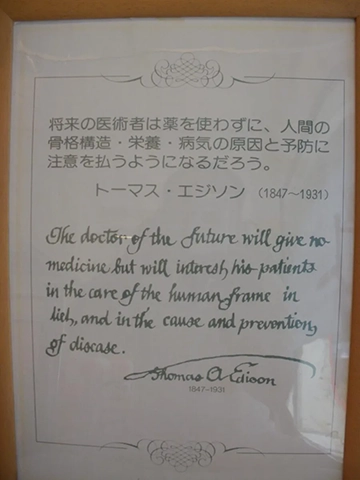 将来の医術者は薬を使わずに、人間の
骨格構造・栄養・病気の原因と予防に
注意を払うようになるだろう。
トーマス・エジソン（1847〜1931）
The doctor of the future will give no
medicine but will interest his patients
in the care of the human frame in
diet, and in the cause and prevention
of disease.
Thomas A Edison
1847-1931